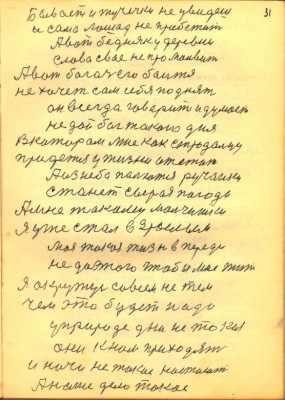 31
Бывает и тучечки не увидеш
и сама лошад не прибежит
А вот бедняку деревни
слова свае не промолвит
А вот богач его боится
не хочет сам себя поднят
он всегда говорит и думает
не дай бог такого дня
В котором мне как
придется у жизни
А из неба
станет сырая погода
А мне такому мальчишки
Я уже стал взрослым
моя такая жизнь впереди
не до этого чтобы мне жит
Я окружус совсем не тем
чем это будет надо
у природе дни не то как
они к нам приходят
и ночи не такие настают
А наше дело такое